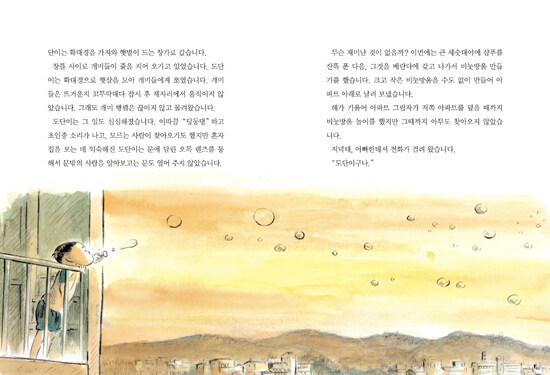 단이는 확대경을 가져와 햇볕이 드는 창가로 갔습니다.
창틀 사이로 개미들이 줄을 지어 오가고 있었습니다. 도단
이는 확대경으로 햇살을 모아 개미들에게 쪼였습니다. 개미
들은 뜨거운지 꼬무락대다 잠시 후 제자리에서 움직이지 않
았습니다. 그래도 개미 행렬은 끊이지 않고 몰려왔습니다.
도단이는 그 일도 심심해졌습니다. 이따금 “딩동댕” 하고
초인종 소리가 나고, 모르는 사람이 찾아오기도 했지만 혼자
집을 보는 데 익숙해진 도단이는 문에 달린 오목 렌즈를 통
해서 문밖의 사람을 알아보고는 문도 열어 주지 않았습니다.
무슨 재미난 것이 없을까? 이번에는 큰 세숫대야에 샴푸를
잔뜩 푼 다음, 그것을 베란다에 갖고 나가서 비눗방울 만들
기를 했습니다. 크고 작은 비눗방울을 수도 없이 만들어 아
파트 아래로 날려 보냈습니다.
해가 기울어 아파트 그림자가 저쪽 아파트를 덮을 때까지
비눗방울 놀이를 했지만 그때까지 아무도 찾아오지 않았습니
다.
저녁때, 아빠한테서 전화가 걸려 왔습니다.
“도단이구나.”